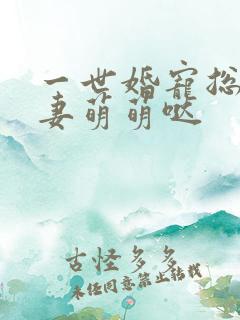 一世婚宠总
妻萌萌哒
古怪多多
未经同意禁止转载